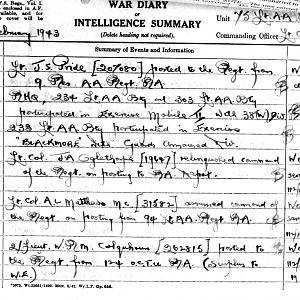 WAR DIARY
of
INTELLIGENCE SUMMARY
(Delete heading not required).
Unit
Commanding Officer
February 1943
Summary of Events and Information
Lt. J.S. Pride [207080] posted to the Regt from
9 Res. AA Regt R/A
RHQ, 234 Lt AA Bty and 303 Lt AA Bty
participated in Exercise Mobile II with 38 (W) Div.
233 Lt AA Bty participated in Exercise
"BLACKMORE" with Guards Armoured Div.
Lt. Col. J.A. Oglethorpe relinquished command
of the Regt. on posting to R/A Depot.
Lt. Col A.L. Matthews M.C. [31582] assumed command of
the Regt, on posting from 94 Lt AA Regt R/A
2/Lieut. W.R.M. Colquhoun [262815] posted to
the Regt from 124 O.C.T.U R/A (Surplus to
W.E.)